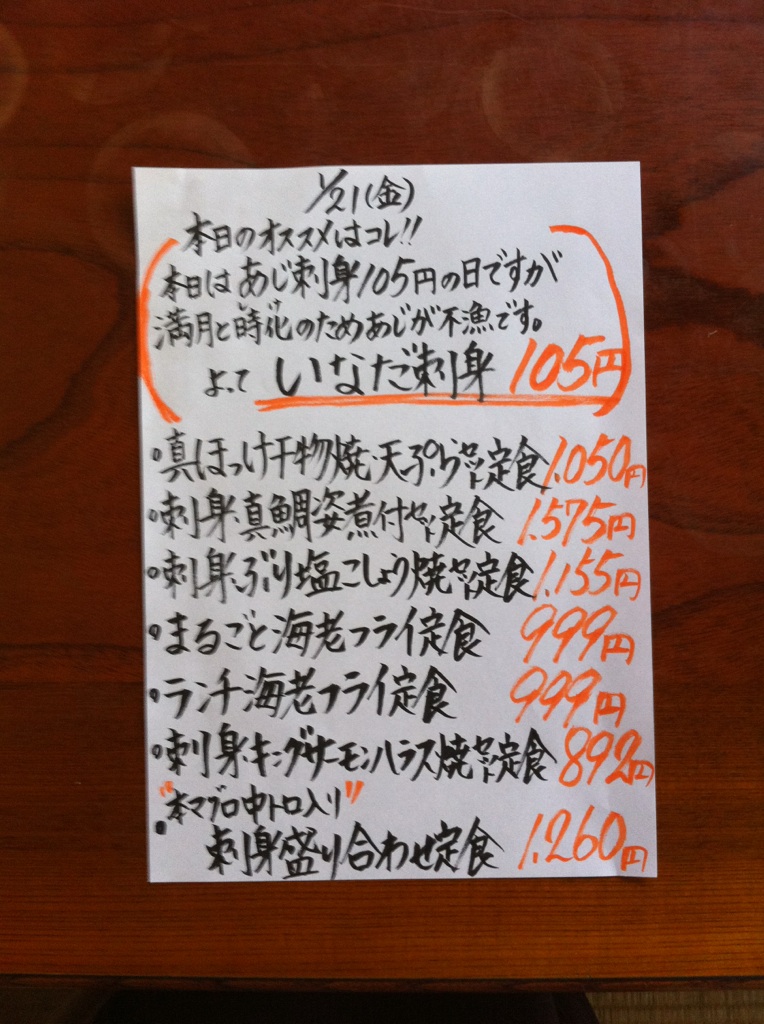 1/21(金)
本日のオススメはコレ!!
本日はあじ刺身105円の日ですが
満月と時花のためあじが不漁です。
しけ
よって いなだ刺身 105円
・真ほっけ干物焼・天ぷらセット定食 1.050円
・刺身・真鯛姿煮付セット定食 1.575円
・刺身・ぶり塩こしょう焼セット定食 1.155円
・まるごと海老フライ定食 999円
・ランチ海老フライ定食 999円
・刺身・キングサーモンハラス焼セット定食 892円
"本マグロ中トロ入り"
・刺身盛り合わせ定食 1.260円